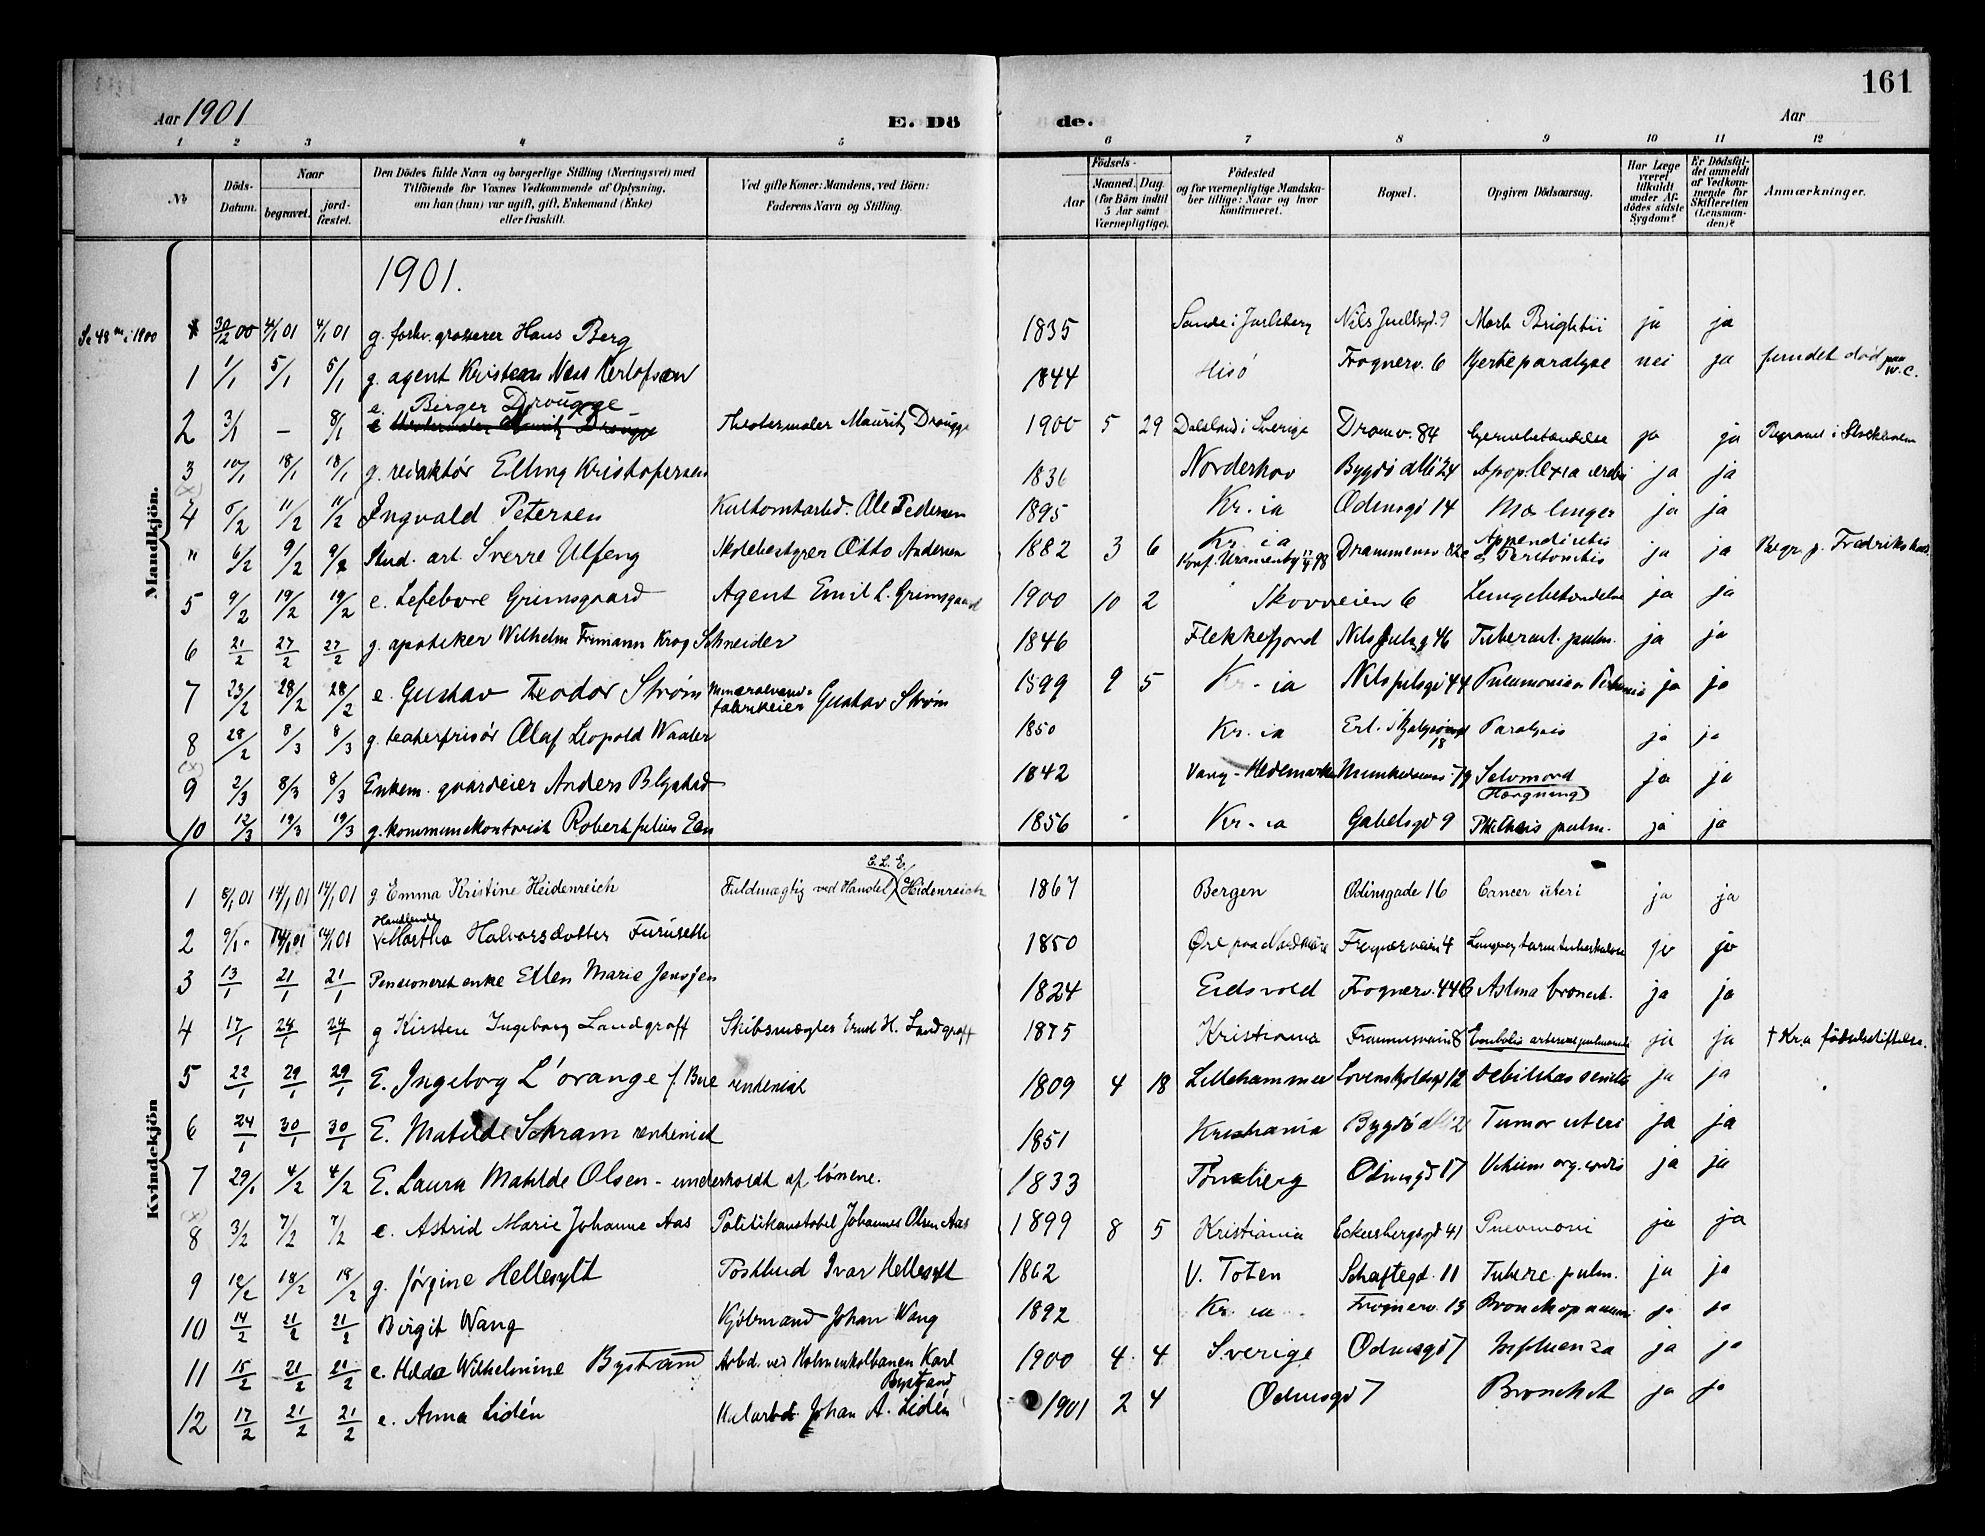 161
Aar 1901 E. Dö de. Aar
1 2 3 4 5 6 7 8 9 10 11 12
No
Döds-Datum.
Naar
begravet.
jord-fæstet.
Den Dödes fulde Navn og borgerlige Stilling (Næringsvei) med
Tilföiende for Voxnes Vedkommende af Oplysning,
om han (hun) var ugift, gift, Enkemand (Enke)
eller fraskilt.
Ved gifte Koner: Mandens, ved Börn:
Faderens Navn og Stilling.
Födsels-
Aar
Maaned. Dag.
(for Börn indtil
5 Aar samt
Værnepligtige).
Födested
og for værnepligtige Mandska-
ber tillige: Naar og hvor
konfirmeret.
Bopæl.
Opgiven Dödsaarsag.
Har Læge
været
tilkaldt
under Af-
dödes sidste
Sygdom?
Er Dödsfal-
det anmeldt
af Vedkom-
mende for
Skifteretten
(Lensman-
den)?
Anmærkninger.
Mandkjön.
1901.
Se 48 m i 1900 30/12 00 4/1 01 4/1 01 g. forhv. grosserer Hans Berg 1835 Sande i Jarlsberg Nils Juelsgd. 9 Morb. Brightii ja ja
1 1/1 5/1 5/1 g. agent Kristen Næss Kerlofsen 1844 Hisö Frognerv. 6 Hjerteparalyse nei ja fundet död paa W.C.
e. Birger Drougge
2 3/1 - 8/1 Theatermaler Mauritz Drougge 1900 5 29 Dalsland i Sverige Dramv. 84 Hjernebetændelse ja ja Begravet i Stockholm
3 10/1 18/1 18/1 g. redaktör Elling Kristofersen 1836 Norderhov Bygdö allé 24 Apoplexia cerebri ja ja
4 5/2 11/2 11/2 Ingvald Petersen Kultomtarbd. Ole Pedersen 1895 Kr.ia Odinsgd 14 Mæslinger ja ja
" 6/2 9/2 9/2 Stud. art. Sverre Ulfeng Skolebestyrer Otto Andersen 1882 3 6 Kr.ia Konf. Uranienby 17/4 98 Drammensv. 82c Appendicitis & Peritonitis ja ja Begr. p. Fredrikshald
5 9/2 19/2 19/2 e. Lefebvre Grimsgaard Agent Emil L. Grimsgaard 1900 10 2 Skovveien 6 Lungebetændelse ja ja
6 21/2 27/2 27/2 g. apoteker Wilhelm Frimann Krog Schneider 1846 Flekkefjord Nils Julsg 46 Tubercul. pulm. ja ja
7 23/2 28/2 28/2 e. Gustav Theodor Ström Mineralvandfabrikeier Gustav Ström 1899 9 5 Kr.ia Nils Julsgd 44 Pneumonia ja ja
8 28/2 8/3 8/3 g. teaterfrisör Olaf Leopold Waaler 1850 Kr.ia 18 Paralysis ja ja
9 2/3 8/3 8/3 Enkem. gaardeier Anders Blystad 1842 Vang - Hedemarken Munkedamsv. 79 Selvmord (Hængning) ja ja
10 12/3 19/3 19/3 g. kommunekontorist Robert Julius 1856 Kr.ia Gabelsgd 9 Phthisis pulm. ja ja
Kvindekjön
1 8/1 01 14/1 01 14/1 01 g Emma Kristine Heidenreich Fuldmægtig ved Handel E.L.E. Heidenreich 1867 Bergen Odinsgade 16 Cancer uteri ja ja
2 9/1 14/1 01 14/1 01 Handlende Martha Halvorsdotter Furuseth 1850 Öre paa Nordmöre Frognerveien 4 Lunge og tarmtuberkulose ja ja
3 13/1 21/1 21/1 Pensioneret enke Ellen Marie Jensen 1824 Eidsvold Frognerv. 44B Astma bronch. ja ja
4 17/1 24/1 24/1 g Kirsten Ingeborg Landgraff Skibsmægler Ernst H. Landgraff 1875 Kristiania 8 Embolia arteriae pulmonalis ja ja † Kr.a födselsstiftelse.
5 22/1 29/1 29/1 E. Ingeborg L'orange f. rentenist 1809 4 18 Lillehammer Lövenskjoldsgd 12 Debilitas senilis ja ja
6 24/1 30/1 30/1 E. Matilde Schram rentenist 1851 Kristiania Bygdö Tumor uteri ja ja
7 29/1 4/2 4/2 E. Laura Matilde Olsen - underholdt af sönnene. 1833 Tönsberg Odinsgd 17 Vitium org. cordis ja ja
8 3/2 7/2 7/2 e. Astrid Marie Johanne Aas Politikonstabel Johannes Olsen Aas 1899 8 5 Kristiania Eckersbergsgd 41 Pneumoni ja ja
9 12/2 18/2 18/2 g. Jörgine Hellesylt Postbud Ivar Hellesylt 1862 V. Toten Schaftegd. 11 Tuberc. pulm. ja ja
10 14/2 21/2 21/2 Birgit Wang Kjöbmand Johan Wang 1892 Kr.ia Frognerv. 13 Bronchopneumoni ja ja
11 15/2 21/2 21/2 e. Hilda Wilhelmine Byström Arbd. ved Holmenkolbanen Karl Byström 1900 4 4 Sverige Odinsgd 7 Influenza ja ja
12 17/2 21/2 21/2 e. Anna Lidén Johan A. Lidén 1901 2 4 Odinsgd 7 Bronchit ja ja